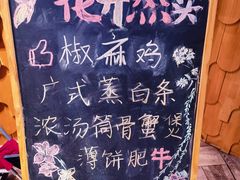 花开燕来
椒麻鸡
广式蒸白条
浓汤筒骨蟹煲
薄饼肥牛